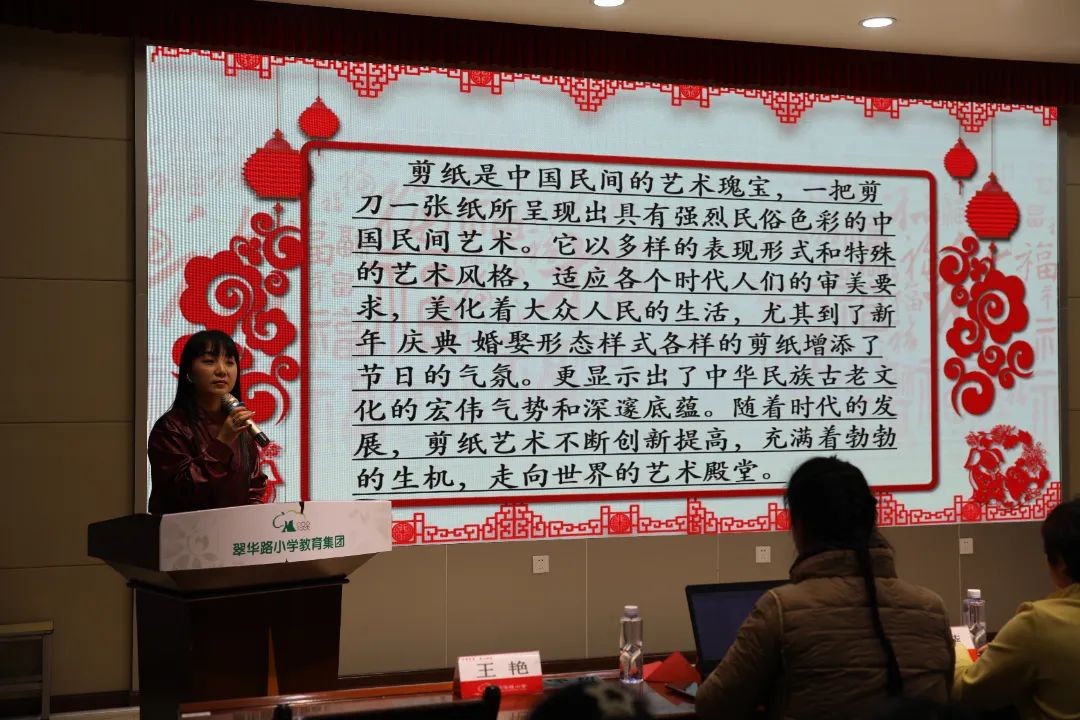 剪纸是中国民间的艺术瑰宝，一把剪
刀一张纸所呈现出具有强烈民俗色彩的中
国民间艺术。它以多样的表现形式和特殊
的艺术风格，适应各个时代人们的审美要
求，美化着大众人民的生活，尤其到了新
年 庆典 婚娶形态样式各样的剪纸增添了
节日的气氛。更显示出了中华民族古老文
化的宏伟气势和深邃底蕴。随着时代的发
展，剪纸艺术不断创新提高，充满着勃勃
的生机，走向世界的艺术殿堂。
福
翠华路小学教育集团
王 艳